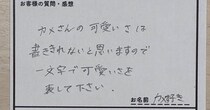 お客様の質問・感想
カメさんの可愛いさは
書ききれないと思いますので
一文字で可愛いさを
表して下さい。
お名前 カメ好き